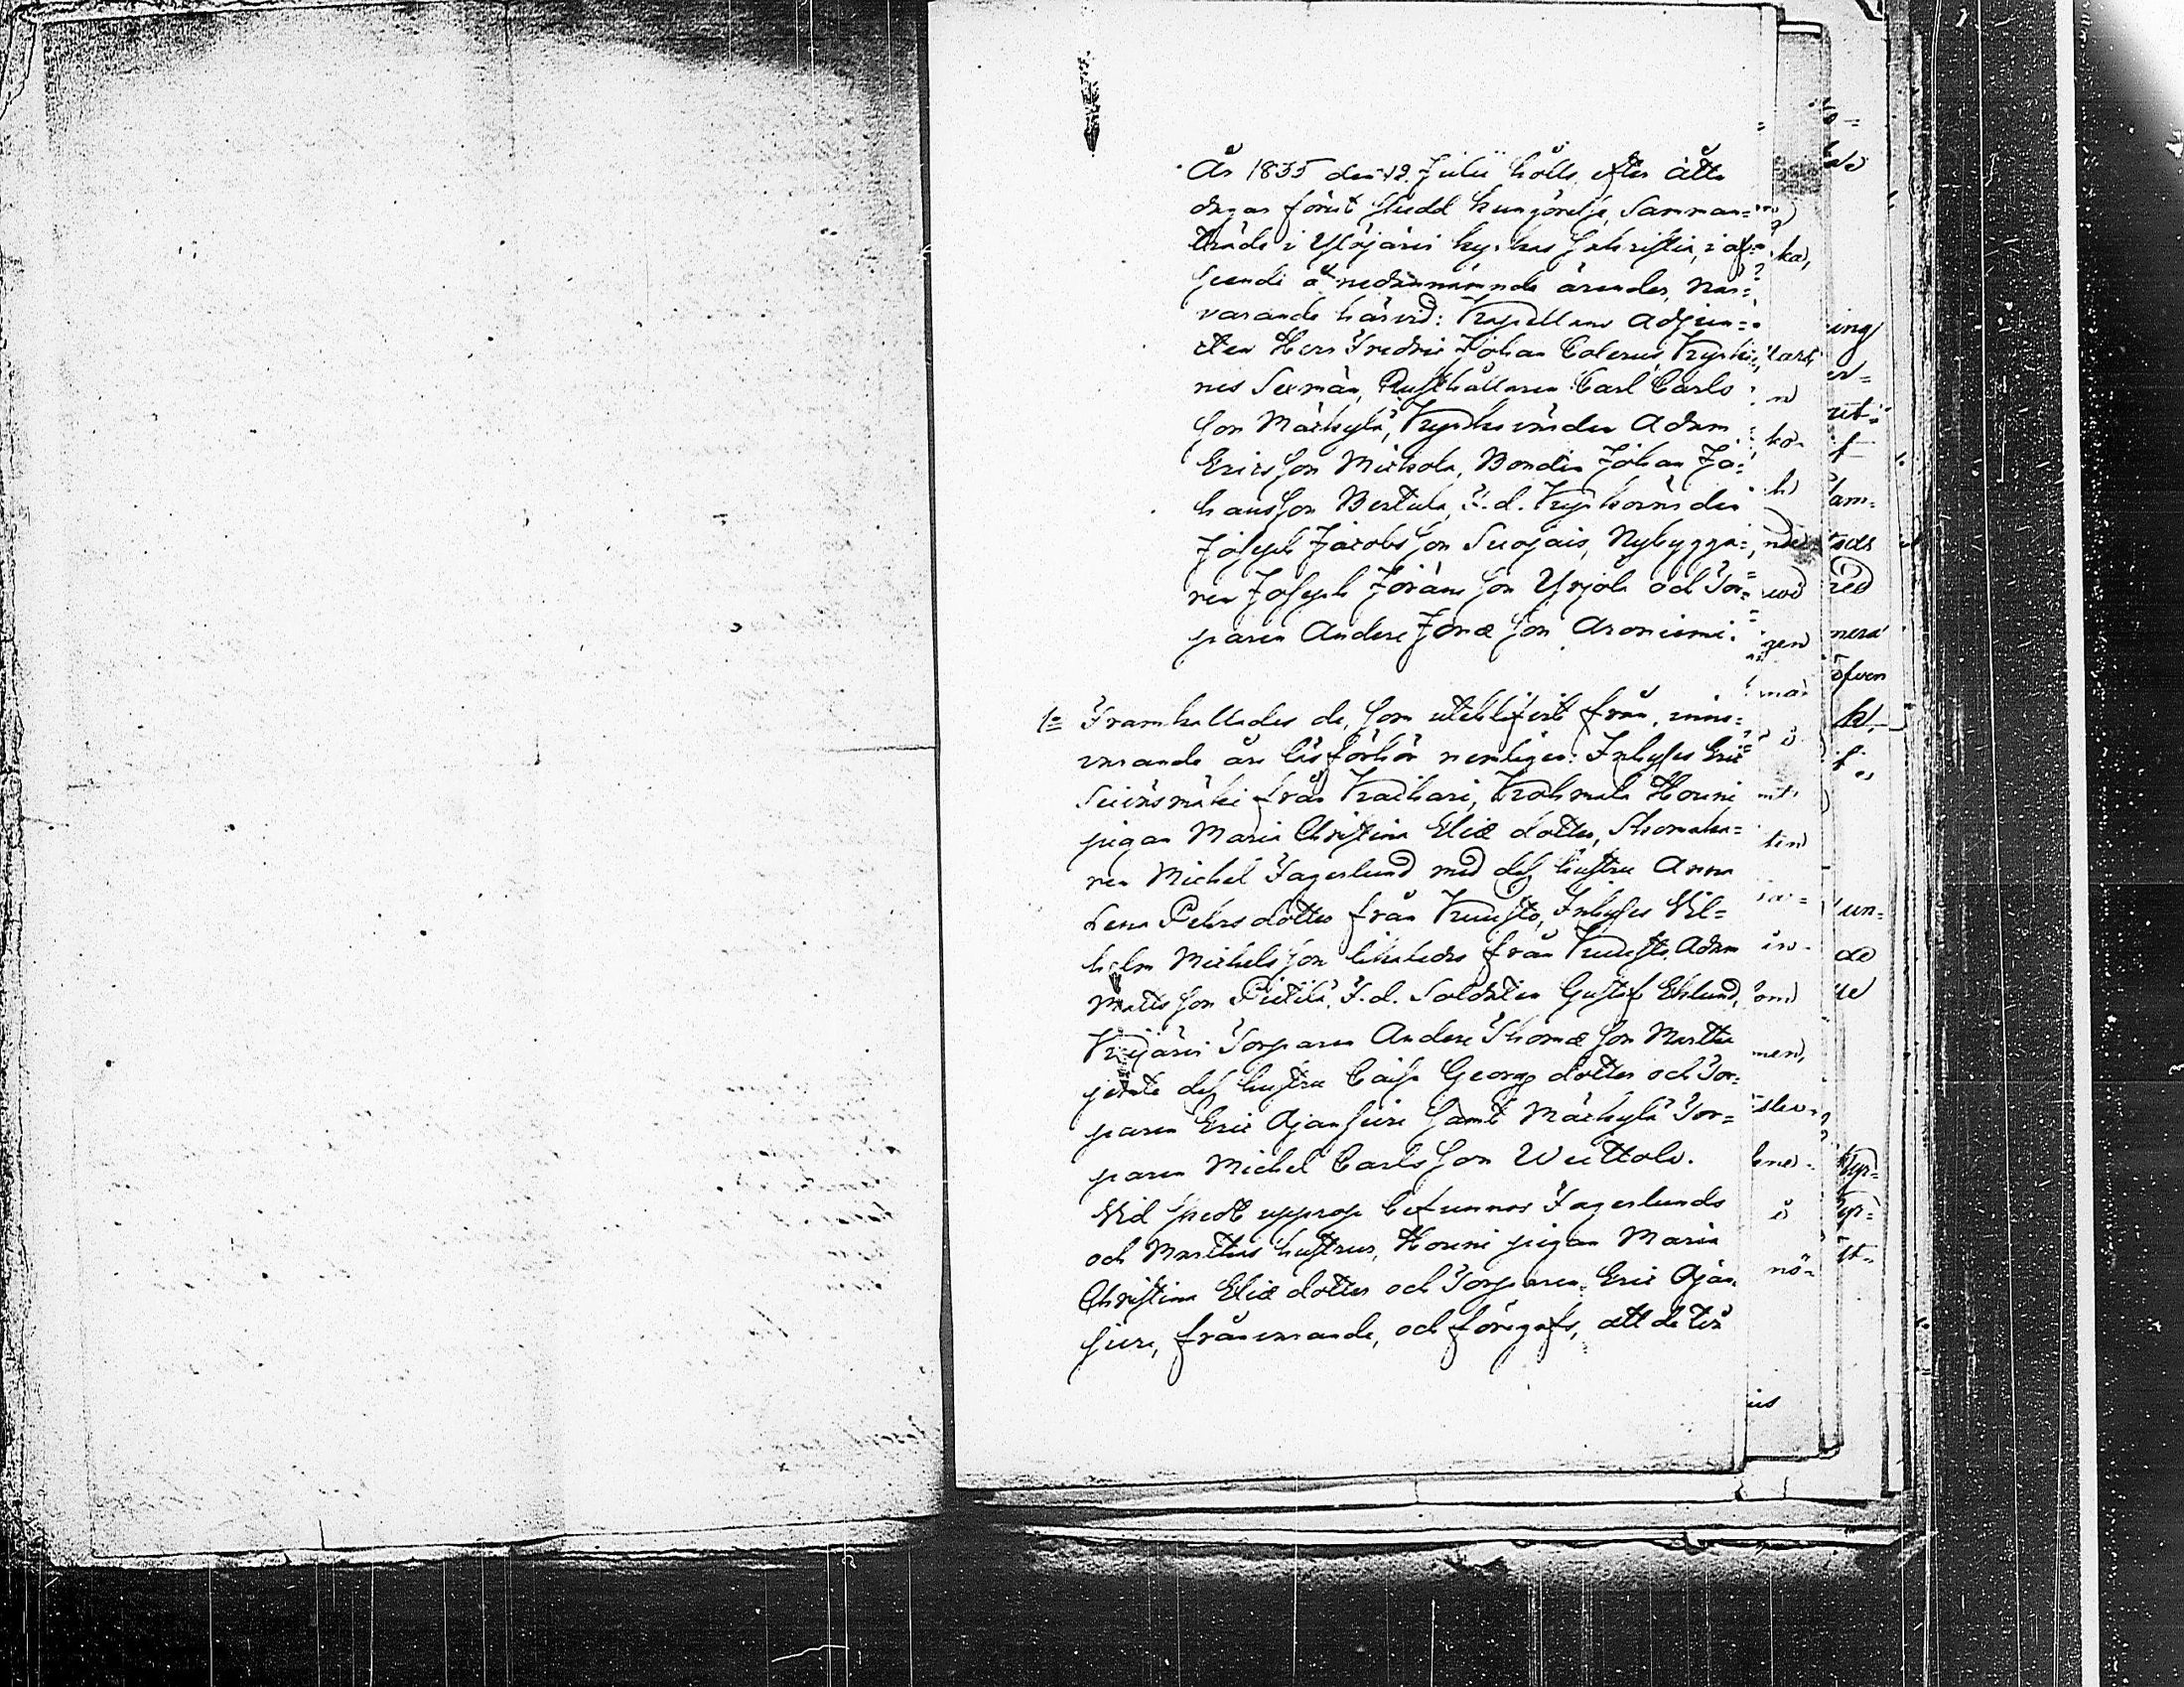 År 1835 den 12. Julii hölls, efter åtta
dagar förut skedd kungörelse, Samman=
träde i Ylöjärvi kyrkas sakristia, i af=
seende å nedannämnde ärender, När=
varande härvid: Kapellans Adjunc=
ten Herr Fredric Johan Calenus, Kyrkio=
nes Sexmän, Rusthållaren Carl Carls
son Mäckylä, Kyrkovärden Adam
Ericsson Mickola, Bonden Johan Jo=
hansson Bertula, F. d. Kyrkovärden
Joseph Jacobsson Suojais, Nybygga=
ren Joseph Jöransson Yrjölä och Tor=
paren Anders Jonæ son Aroniemi.
1o Framkallades de, som uteblifvit från, inne=
varande års läsförhör nemligen: Inhyses Eric
från Kraihari, Krohmala Houni
pigan Maria Christina Eliæ dotter, Skomaka=
ren Michel Fagerlund med dess hustru Anna
Lena Petersdotter från Kuusto, Inhyses Vil=
helm Michelsson likaledes från Kuusto, Adam
Mattsson Pietilä, F. d. Soldaten Gustaf Eklund,
Torparen Anders Thomæ son Marttu
jemte dess hustru Caisa Georgs dotter och Tor=
paren Eric Ajansuu samt Mäckylä Tor=
paren Michel Carlsson Wuittola.
Vid skedt upprop befunnos Fagerlunds
och Marttus hustrur, Houni pigan Maria
Christina Eliæ dotter och Torparen Eric Ajan
suu, frånvarande, och föregafs, att de två